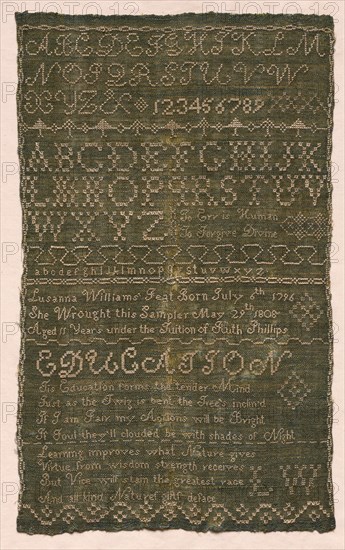 ABCDEFGHIKLM
NOPQRSTUVW
XYZ& 123456789
ABCDEFGHIJK
LMNOPQRSTUV
WXYZ
To Err is Human
To Forgive Divine
abcdefghijklmnopqrstuvwxyz
Lusanna Williams Born July 6th 1796
She Wrought this Sampler May 29th 1808
Aged 11 Years under the Tuition of Ruth Phillips
EDUCATION
Tis Education forms the tender Mind
Just as the Twig is bent the Tree's inclin'd
If I am Fair my Actions will be Bright
If Foul they'll clouded be with shades of Night
Learning improves what Nature gives
Virtue from wisdom strength receives
But Vice will stain the greatest race
And all kind Nature gifts deface
L W
PHOTO12